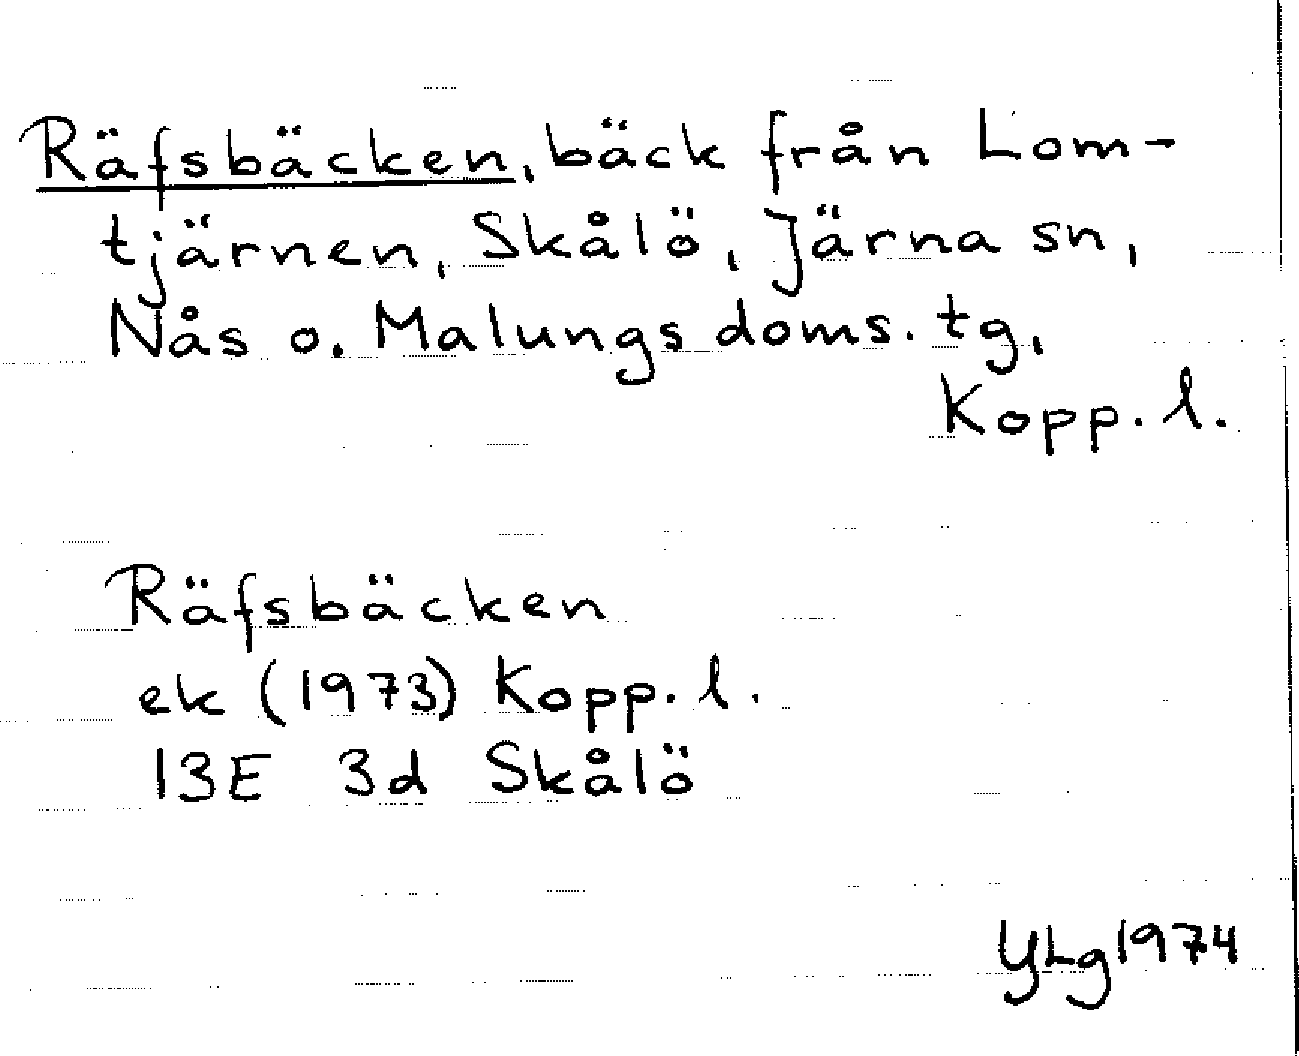 Räfsbäcken, bäck från Lom-
tjärnen, Skålö, Järna sn,
Nås o. Malungs doms. tg,
Kopp. l.
Räfsbäcken
ek (1973) Kopp. l.
13E 3d Skålö
YLg 1974